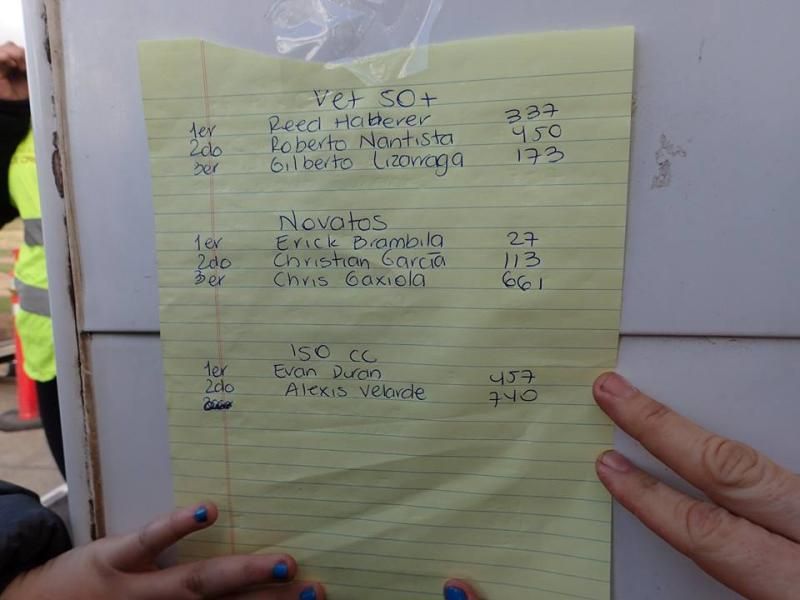 Vet 50+
1er Reed Halterer 337
2do Roberto Nantista 450
3er Gilberto Lizarraga 173
Novatos
1er Erick Brambila 27
2do Christian Garcia 113
3er Chris Gaxiola 661
150 cc
1er Evan Duran 457
2do Alexis Velarde 740